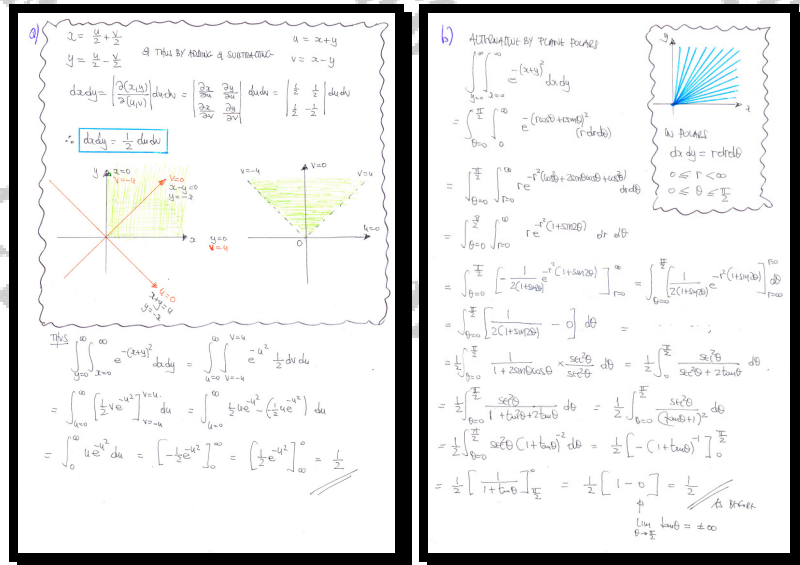 a)
x = u/2 + v/2
y = u/2 - v/2
THIS BY ADDING & SUBTRACTING
u = x+y
v = x-y
dxdy = |∂(x,y)/∂(u,v)| dudv = |∂x/∂u ∂y/∂u ∂x/∂v ∂y/∂v| dudv = |1/2 1/2 1/2 -1/2| dudv
∴ dxdy = 1/2 dudv
y
x=0
v=-u
v=0
x-y=0
x
y=0
v=u
u=0
v=-u
v=0
v=u
u=0
0
THUS
∫_{y=0}^{∞} ∫_{x=0}^{∞} e^{-(x+y)²} dxdy = ∫_{u=0}^{∞} ∫_{v=-u}^{v=u} e^{-u²} 1/2 dv du
= ∫_{u=0}^{∞} [1/2 v e^{-u²}]_{v=-u}^{v=u} du = ∫_{u=0}^{∞} 1/2 u e^{-u²} - (-1/2 u e^{-u²}) du
= ∫_0^∞ u e^{-u²} du = [-1/2 e^{-u²}]_0^∞ = [1/2 e^{-u²}]_∞^0 = 1/2
b)
ALTERNATIVE BY PLANE POLARS
∫_{y=0}^{∞} ∫_{x=0}^{∞} e^{-(x+y)²} dx dy
= ∫_{θ=0}^{π/2} ∫_0^∞ e^{-(rcosθ+rsinθ)²} (r dr dθ)
= ∫_{θ=0}^{π/2} ∫_{r=0}^{∞} r e^{-r²(cos²θ+2sinθcosθ+cos²θ)} dr dθ
= ∫_{θ=0}^{π/2} ∫_{r=0}^{∞} r e^{-r²(1+sin2θ)} dr dθ
y
x
IN POLARS
dx dy = r dr dθ
0 ≤ r < ∞
0 ≤ θ ≤ π/2
= ∫_{θ=0}^{π/2} [-1/(2(1+sin2θ)) e^{-r²(1+sin2θ)}]_{r=0}^{∞} = ∫_{θ=0}^{π/2} [1/(2(1+sin2θ)) e^{-r²(1+sin2θ)}]_{r=∞}^{r=0} dθ
= ∫_{θ=0}^{π/2} [1/(2(1+sin2θ)) - 0] dθ = ....
= 1/2 ∫_{θ=0}^{π/2} 1/(1+2sinθcosθ) × sec²θ/sec²θ dθ = 1/2 ∫_0^{π/2} sec²θ/(sec²θ+2tanθ) dθ
= 1/2 ∫_{θ=0}^{π/2} sec²θ/(1+tan²θ+2tanθ) dθ = 1/2 ∫_{θ=0}^{π/2} sec²θ/(tanθ+1)² dθ
= 1/2 ∫_{θ=0}^{π/2} sec²θ (1+tanθ)^{-2} dθ = 1/2 [-(1+tanθ)^{-1}]_0^{π/2}
= 1/2 [1/(1+tanθ)]_{π/2}^0 = 1/2 [1 - 0] = 1/2
AS BEFORE
lim_{θ→π/2} tanθ = ±∞